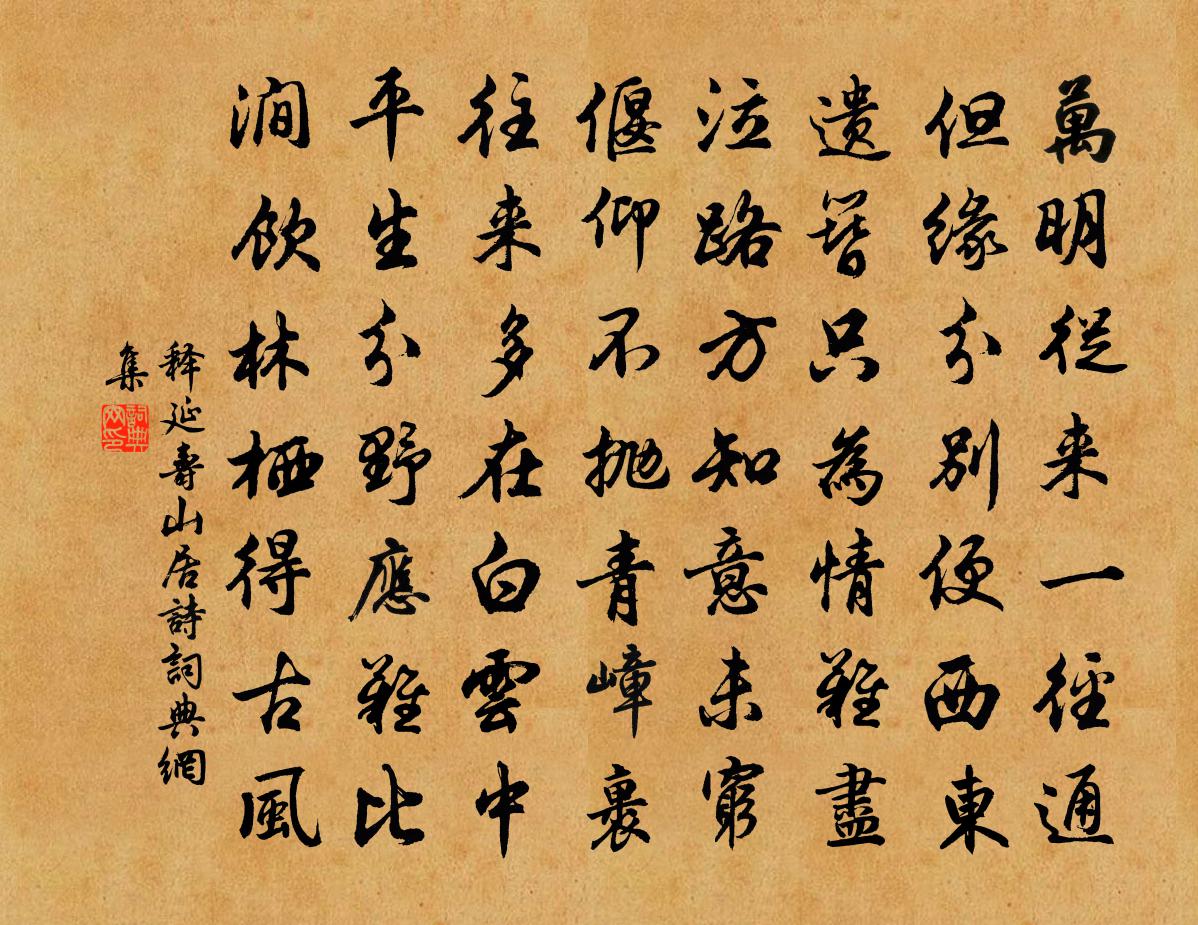 萬明從来一徑通
但緣分別便西東
遗簪只為情難盡
泣路方知意未窮
偃仰不抛青嶂裏
往来多在白雲中
平生分野應難比
澗飲林栖得古風
释延壽山居詩詞典網
集
詞典
网印